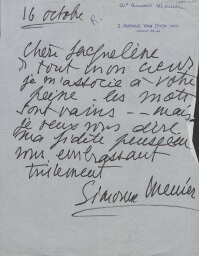 16 octobre
2, AVENUE VAN DYCK VIIIe
Chère Jacqueline
De tout mon cœur
je m'associe à votre
peine. les mots
sont vains -- mais
je veux vous dire
ma fidèle pensée en
vous embrassant
tristement
Simone Menier